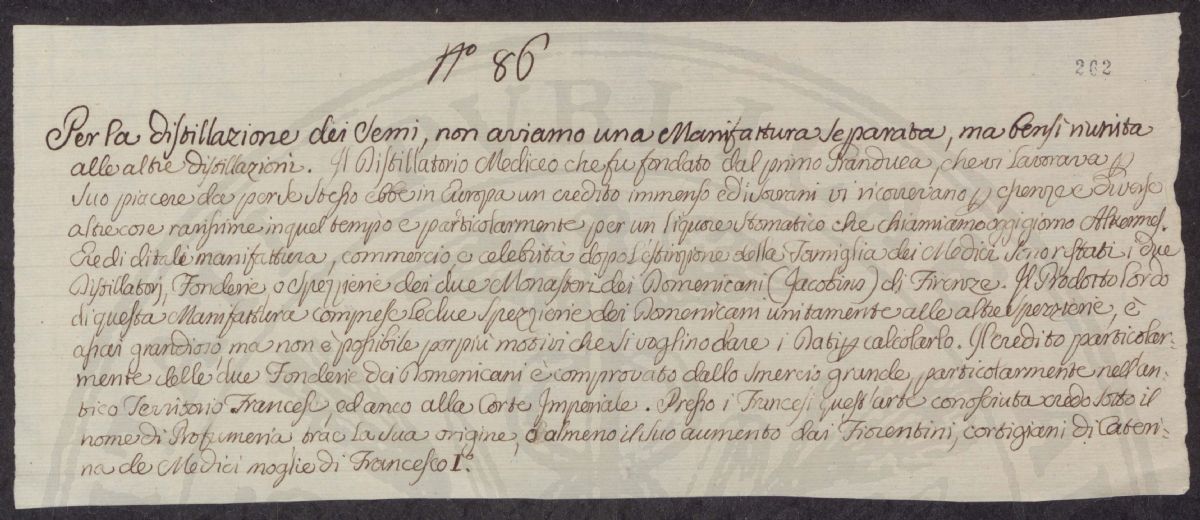 No 86
262
Per la distillazione dei Semi, non aviamo una Manifattura separata, ma bensì riunita
alle altre distillazioni. Il Distillatorio Mediceo che fu fondato dal primo Granduca, che vi lavorava p
suo piacere da per se stesso ebbe in Europa un credito immenso ed i Sovrani vi ricorrevano p essenze e diverse
altre cose rarissime in quel tempo e particolarmente per un liquore stomatico che chiamiamo oggi giorno Alkermes.
Eredi di tale manifattura, commercio e celebrità dopo l'estinzione della Famiglia dei Medici sono restati i due
Distillatorj, Fonderie, o Spezzierie dei due Monasteri dei Domenicani (Jacobins) di Firenze. Il Prodotto lordo
di questa Manifattura comprese le due Spezzierie dei Domenicani unitamente alle altre Spezzierie, è
assai grandioso, ma non è possibile per più motivi che si voglino dare i Dati p calcolarlo. Il credito particolar-
mente delle due Fonderie dei Domenicani è comprovato dallo smercio grande, particolarmente nell'an-
tico Territorio Francese, ed anco alla Corte Imperiale. Presso i Francesi quest'arte conosciuta credo sotto il
nome di Profumeria trae la sua origine, o almeno il suo aumento dai Fiorentini, cortigiani di Cateri-
na de Medici moglie di Francesco I.o